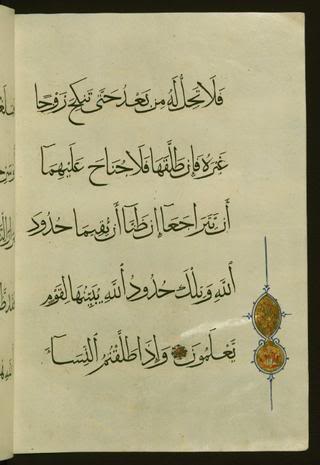 فَلَا تَحِلُّ لَهُ مِن بَعْدُ حَتَّى تَنكِحَ زَوْجًا
غَيْرَهُ فَإِن طَلَّقَهَا فَلَا جُنَاحَ عَلَيْهِمَا
أَن يَتَرَاجَعَا إِن ظَنَّا أَن يُقِيمَا حُدُودَ
ٱللَّهِ وَتِلْكَ حُدُودُ ٱللَّهِ يُبَيِّنُهَا لِقَوْمٍ
يَعْلَمُونَ وَإِذَا طَلَّقْتُمُ ٱلنِّسَاءَ